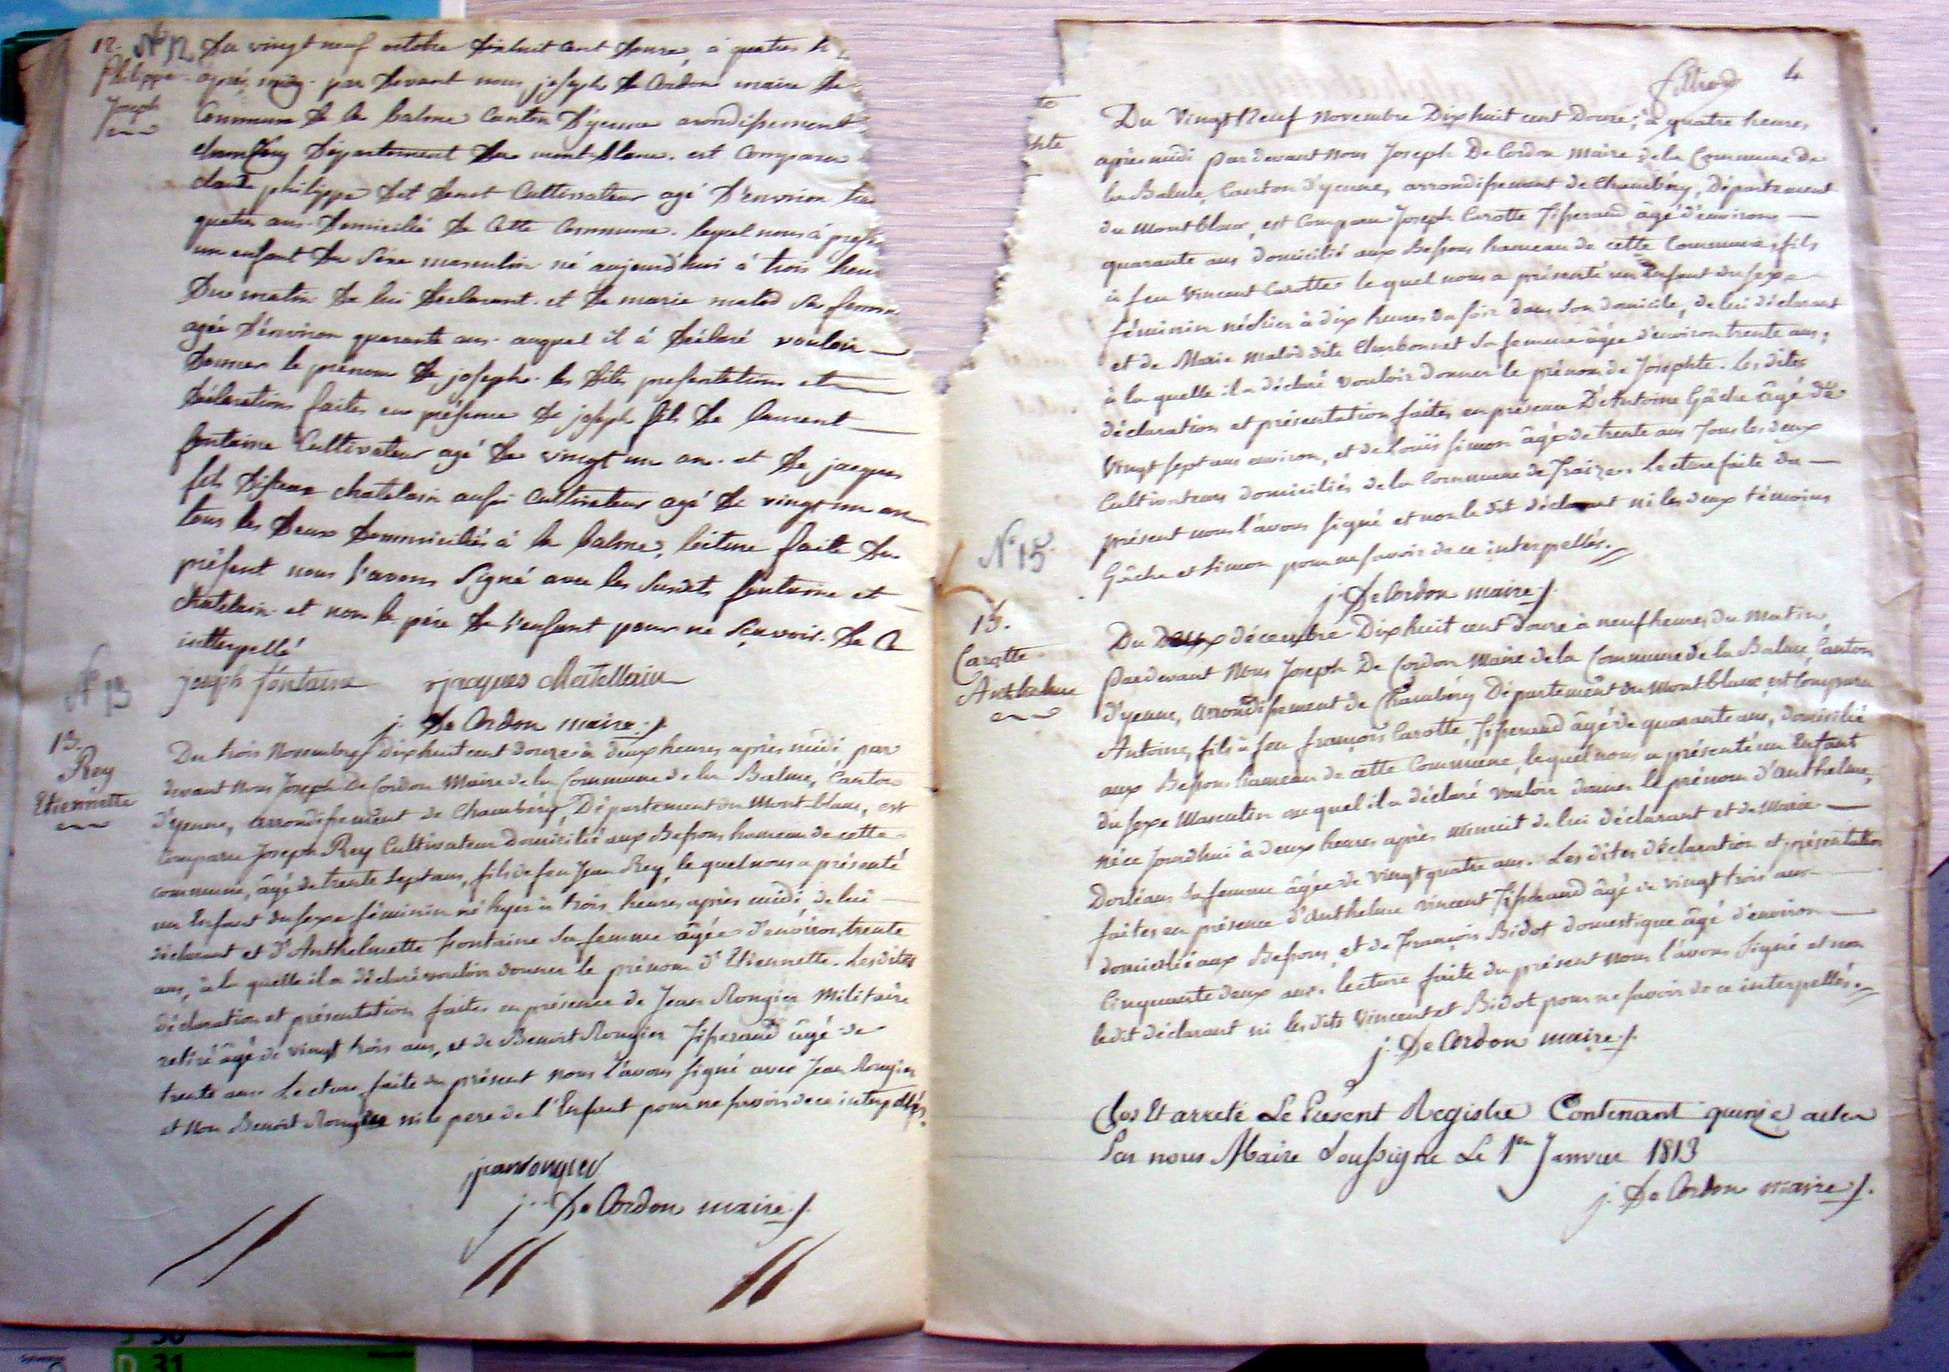 12. N° 12
Philippe
Joseph
Du vingt neuf octobre dixhuit cent douze, à quatres h
après midy par devant nous joseph De Cordon maire de
Commune de la balme Canton D'yenne arondissement
chambery Département du mont-blanc. est comparu
claude philippe dit benet Cultivateur agé D'environ
quatre ans Domicilié de Cette Commune. lequel nous à pres
un enfant du séxe masculin né aujourd'hui à trois heu
Du matin de lui Déclarant et de marie malod sa femme
agée D'environ quarante ans auquel il à Déclaré vouloir
Donner le prénom de joseph. les dites presentations et
Déclarations faites en présence de joseph fils de laurent
fontaine Cultivateur agé de vingt un an. et de jacques
fils chatelain aussi Cultivateur agé de vingt un an
tous les deux Dommiciliés à la balme, lécture faite du
présent nous l'avons signé avec les susdits fontaine et
chatelain et non le père de l'enfant pour ne sçavoir. de ce
intterpellé
joseph fontaine jacques Chatellain
j. De Cordon maire
N° 13
13.
Rey
Etiennette
Du trois Novembre dixhuit cent douze à deux heures après midi par
devant nous Joseph De Cordon Maire de la Commune de la Balme, Canton
d'yenne, arrondissement de Chambéry, Département du Montblanc, est
comparu Joseph Rey Cultivateur domicilié aux Bessons hameau de cette
commune, âgé de trente sept ans, fils de feu Jean Rey, le quel nous a présenté
un Enfant du sexe féminin né hyer à trois heures après midi, de lui
déclarant et d'Anthelmette Fontaine sa femme âgée d'environ trente
ans, à la quelle il a déclaré vouloir donner le prénom d'Etiennette. Les dites
déclaration et présentation faites en présence de Jean Rougier Militaire
retiré âgé de vingt trois ans, et de Benoit Rougier Tisserand âgé de
trente ans. Lecture faite du présent nous l'avons signé avec Jean Rougier
et non Benoit Rougier ni le pere de l'Enfant pour ne savoir de ce interpellés.
jean rougier
j. De Cordon maire
4
Du Vingt Neuf Novembre Dixhuit cent Douze, à quatre heures
après midi par devant Nous Joseph De Cordon Maire de la Commune de
la Balme, Canton d'yenne, arrondissement de Chambéry, Département
du Montblanc, est Comparu Joseph Carotte Tisserand âgé d'environ
quarante ans domicilié aux Bessons hameau de cette Commune, fils
à feu Vincent Carotte le quel nous a présenté un Enfant du sexe
féminin né hier à dix heures du soir dans son domicile, de lui déclarant
et de Marie Malod dite Charbonnet sa femme âgée d'environ trente ans,
à la quelle il a déclaré vouloir donner le prénom de Josephte. Les dites
déclaration et présentation faites en présence D'Antoine Gâche âgé de
vingt sept ans environ, et de Louis Simon âgé de trente ans Tous les deux
Cultivateurs domiciliés de la Commune de Traize. Lecture faite du
présent nous l'avons signé et non le dit déclarant ni les deux témoins
Gâche et Simon pour ne savoir de ce interpellés.
j. De Cordon maire
N° 15.
15.
Carotte
Anthelme
Du deux décembre Dixhuit cent douze à neuf heures du Matin,
Pardevant Nous Joseph De Cordon Maire de la Commune de la Balme, Canton
d'yenne, arrondissement de Chambéry Département du Montblanc, est Comparu
Antoine, fils à feu françois Carotte, Tisserand âgé de quarante ans, domicilié
aux Bessons hameau de cette Commune, lequel nous a présenté un Enfant
du sexe Masculin au quel il a déclaré vouloir donner le prénom d'Anthelme,
né ce Jourdhui à deux heures après minuit de lui déclarant et de Marie
Dorléans sa femme âgée de vingt quatre ans. Les dites déclaration et présentation
faites en présence d'Anthelme Vincent Tisserand âgé de vingt trois ans
domicilié aux Bessons, et de François Bidot domestique âgé d'environ
Cinquante deux ans. Lecture faite du présent nous l'avons signé et non
le dit déclarant ni les dits Vincent et Bidot pour ne savoir de ce interpellés.
j. De Cordon maire
Clos Et arreté Le Present Registre Contenant quinze actes
Par nous Maire Soussigné Le 1er Janvier 1813
j. De Cordon maire
D 31